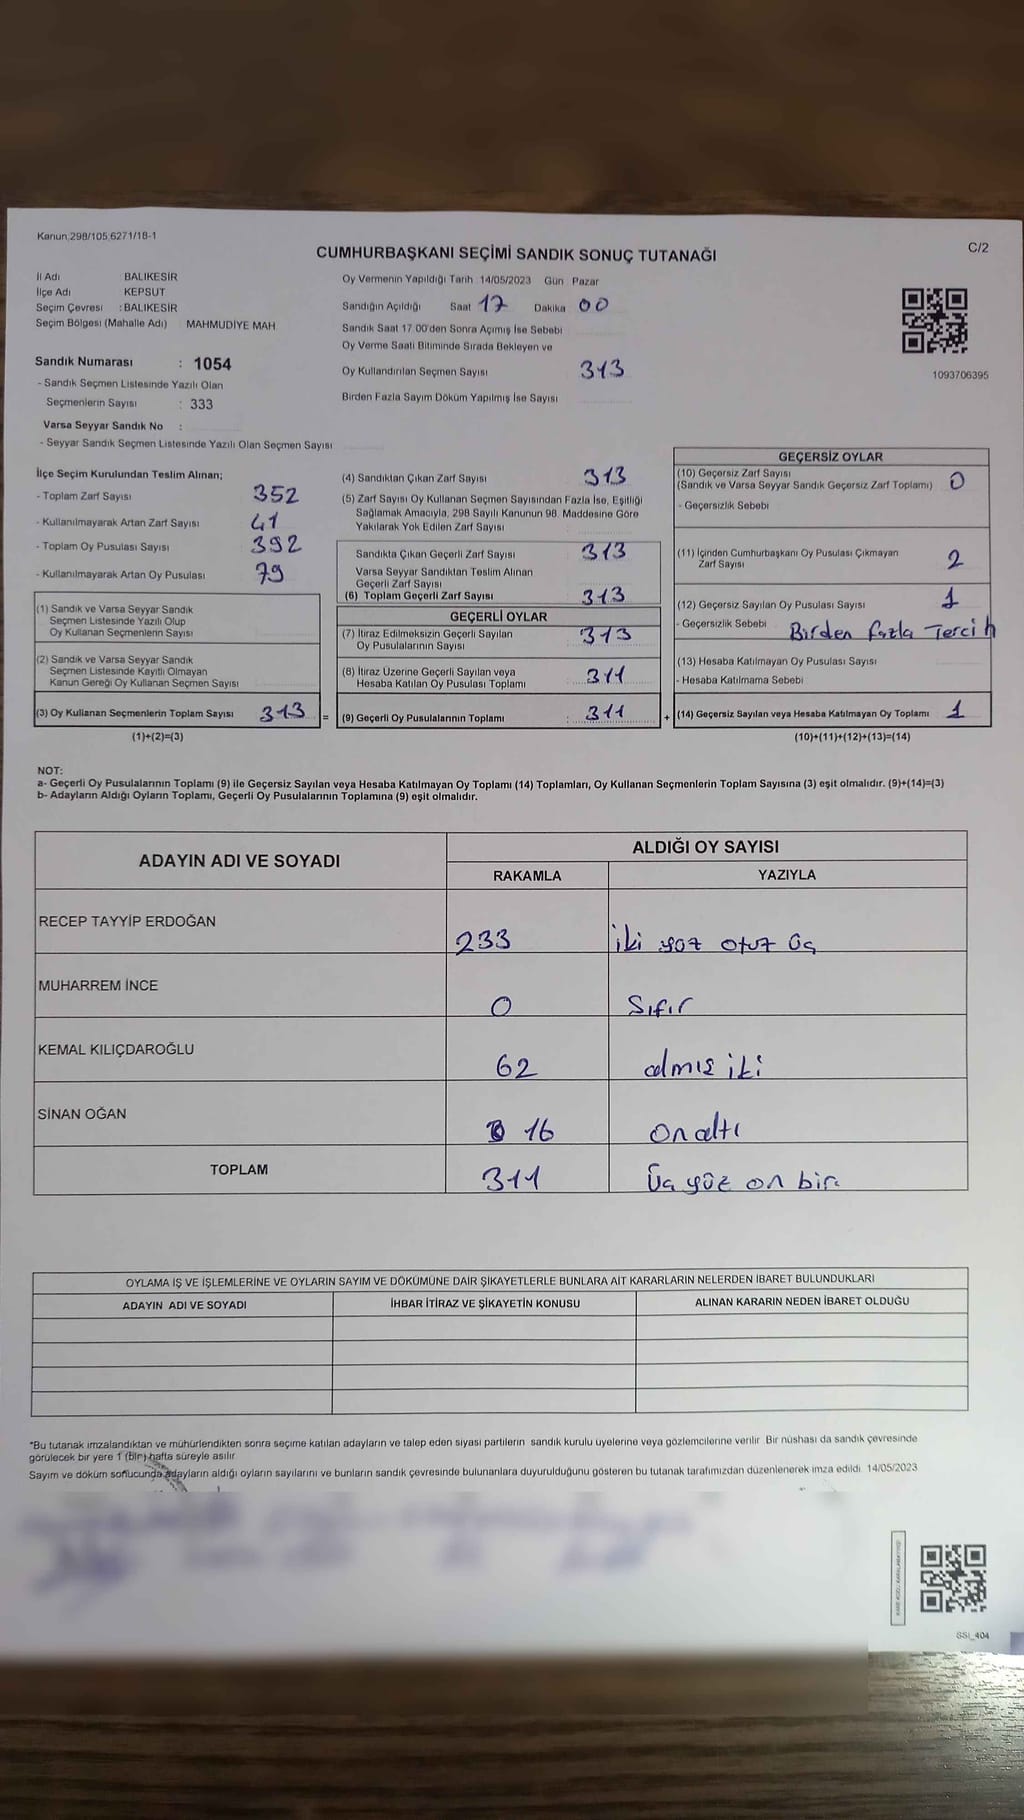 Kanun;298/105;6271/18-1
C/2
CUMHURBAŞKANI SEÇİMİ SANDIK SONUÇ TUTANAĞI
İl Adı : BALIKESİR
İlçe Adı : KEPSUT
Seçim Çevresi : BALIKESİR
Seçim Bölgesi (Mahalle Adı) MAHMUDİYE MAH.
Oy Vermenin Yapıldığı Tarih 14/05/2023 Gün Pazar
Sandığın Açıldığı Saat 17 Dakika 00
Sandık Saat 17.00'den Sonra Açımış İse Sebebi
Oy Verme Saati Bitiminde Sırada Bekleyen ve
Oy Kullandırılan Seçmen Sayısı 313
Birden Fazla Sayım Döküm Yapılmış İse Sayısı
1093706395
Sandık Numarası : 1054
- Sandık Seçmen Listesinde Yazılı Olan
Seçmenlerin Sayısı : 333
Varsa Seyyar Sandık No :
- Seyyar Sandık Seçmen Listesinde Yazılı Olan Seçmen Sayısı
İlçe Seçim Kurulundan Teslim Alınan;
- Toplam Zarf Sayısı 352
- Kullanılmayarak Artan Zarf Sayısı 41
- Toplam Oy Pusulası Sayısı 392
- Kullanılmayarak Artan Oy Pusulası 79
(1) Sandık ve Varsa Seyyar Sandık
Seçmen Listesinde Yazılı Olup
Oy Kullanan Seçmenlerin Sayısı
(2) Sandık ve Varsa Seyyar Sandık
Seçmen Listesinde Kayıtlı Olmayan
Kanun Gereği Oy Kullanan Seçmen Sayısı
(3) Oy Kullanan Seçmenlerin Toplam Sayısı 313 =
(1)+(2)=(3)
(4) Sandıktan Çıkan Zarf Sayısı 313
(5) Zarf Sayısı Oy Kullanan Seçmen Sayısından Fazla İse, Eşitliği
Sağlamak Amacıyla, 298 Sayılı Kanunun 98. Maddesine Göre
Yakılarak Yok Edilen Zarf Sayısı
Sandıkta Çıkan Geçerli Zarf Sayısı 313
Varsa Seyyar Sandıktan Teslim Alınan
Geçerli Zarf Sayısı
(6) Toplam Geçerli Zarf Sayısı 313
GEÇERLİ OYLAR
(7) İtiraz Edilmeksizin Geçerli Sayılan
Oy Pusulalarının Sayısı 313
(8) İtiraz Üzerine Geçerli Sayılan veya
Hesaba Katılan Oy Pusulası Toplamı 311
(9) Geçerli Oy Pusulalarının Toplamı : 311 +
GEÇERSİZ OYLAR
(10) Geçersiz Zarf Sayısı
(Sandık ve Varsa Seyyar Sandık Geçersiz Zarf Toplamı) 0
- Geçersizlik Sebebi
(11) İçinden Cumhurbaşkanı Oy Pusulası Çıkmayan
Zarf Sayısı 2
(12) Geçersiz Sayılan Oy Pusulası Sayısı 1
- Geçersizlik Sebebi Birden fazla Tercih
(13) Hesaba Katılmayan Oy Pusulası Sayısı
- Hesaba Katılmama Sebebi
(14) Geçersiz Sayılan veya Hesaba Katılmayan Oy Toplamı 1
(10)+(11)+(12)+(13)=(14)
NOT:
a- Geçerli Oy Pusulalarının Toplamı (9) ile Geçersiz Sayılan veya Hesaba Katılmayan Oy Toplamı (14) Toplamları, Oy Kullanan Seçmenlerin Toplam Sayısına (3) eşit olmalıdır. (9)+(14)=(3)
b- Adayların Aldığı Oyların Toplamı, Geçerli Oy Pusulalarının Toplamına (9) eşit olmalıdır.
ADAYIN ADI VE SOYADI
ALDIĞI OY SAYISI
RAKAMLA YAZIYLA
RECEP TAYYİP ERDOĞAN 233 iki yüz otuz üç
MUHARREM İNCE 0 Sıfır
KEMAL KILIÇDAROĞLU 62 atmış iki
SİNAN OĞAN 16 on altı
TOPLAM 311 Üç yüz on bir
OYLAMA İŞ VE İŞLEMLERİNE VE OYLARIN SAYIM VE DÖKÜMÜNE DAİR ŞİKAYETLERLE BUNLARA AİT KARARLARIN NELERDEN İBARET BULUNDUKLARI
ADAYIN ADI VE SOYADI İHBAR İTİRAZ VE ŞİKAYETİN KONUSU ALINAN KARARIN NEDEN İBARET OLDUĞU
*Bu tutanak imzalandıktan ve mühürlendikten sonra seçime katılan adayların ve talep eden siyasi partilerin sandık kurulu üyelerine veya gözlemcilerine verilir. Bir nüshası da sandık çevresinde
görülecek bir yere 1 (bir) hafta süreyle asılır.
Sayım ve döküm sonucunda adayların aldığı oyların sayılarını ve bunların sandık çevresinde bulunanlara duyurulduğunu gösteren bu tutanak tarafımızdan düzenlenerek imza edildi. 14/05/2023
SSI_404